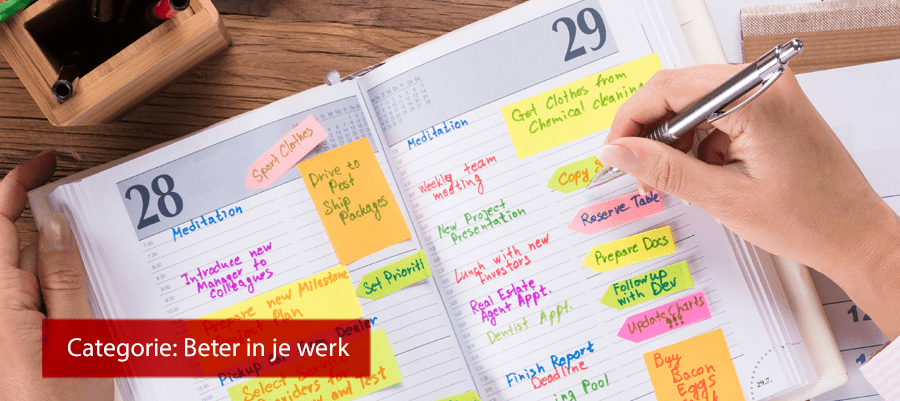 28
Sport Clothes
Drive to
Post
Ship
Packages
Meditation
Introduce new
Manager to
colleagues
Set Prioriti
Prepare new Milestone
Project Plan
Pickup Dealer
Select
for
and Test
Categorie: Beter in je werk
29
Get Clothes from
Chemical cleaning
Meditation
Weekly team
meeting
Copy
New Project
Presentation
Reserve Table
Lunch with new
investors
Prepare Docs
Real Estate
Agent Appt.
Follow up
with Dev
Dentist Appt.
Update Charts
!!!
Finish Report
Deadline
Buy
Bacon
Eggs
Pool
29.7.
12